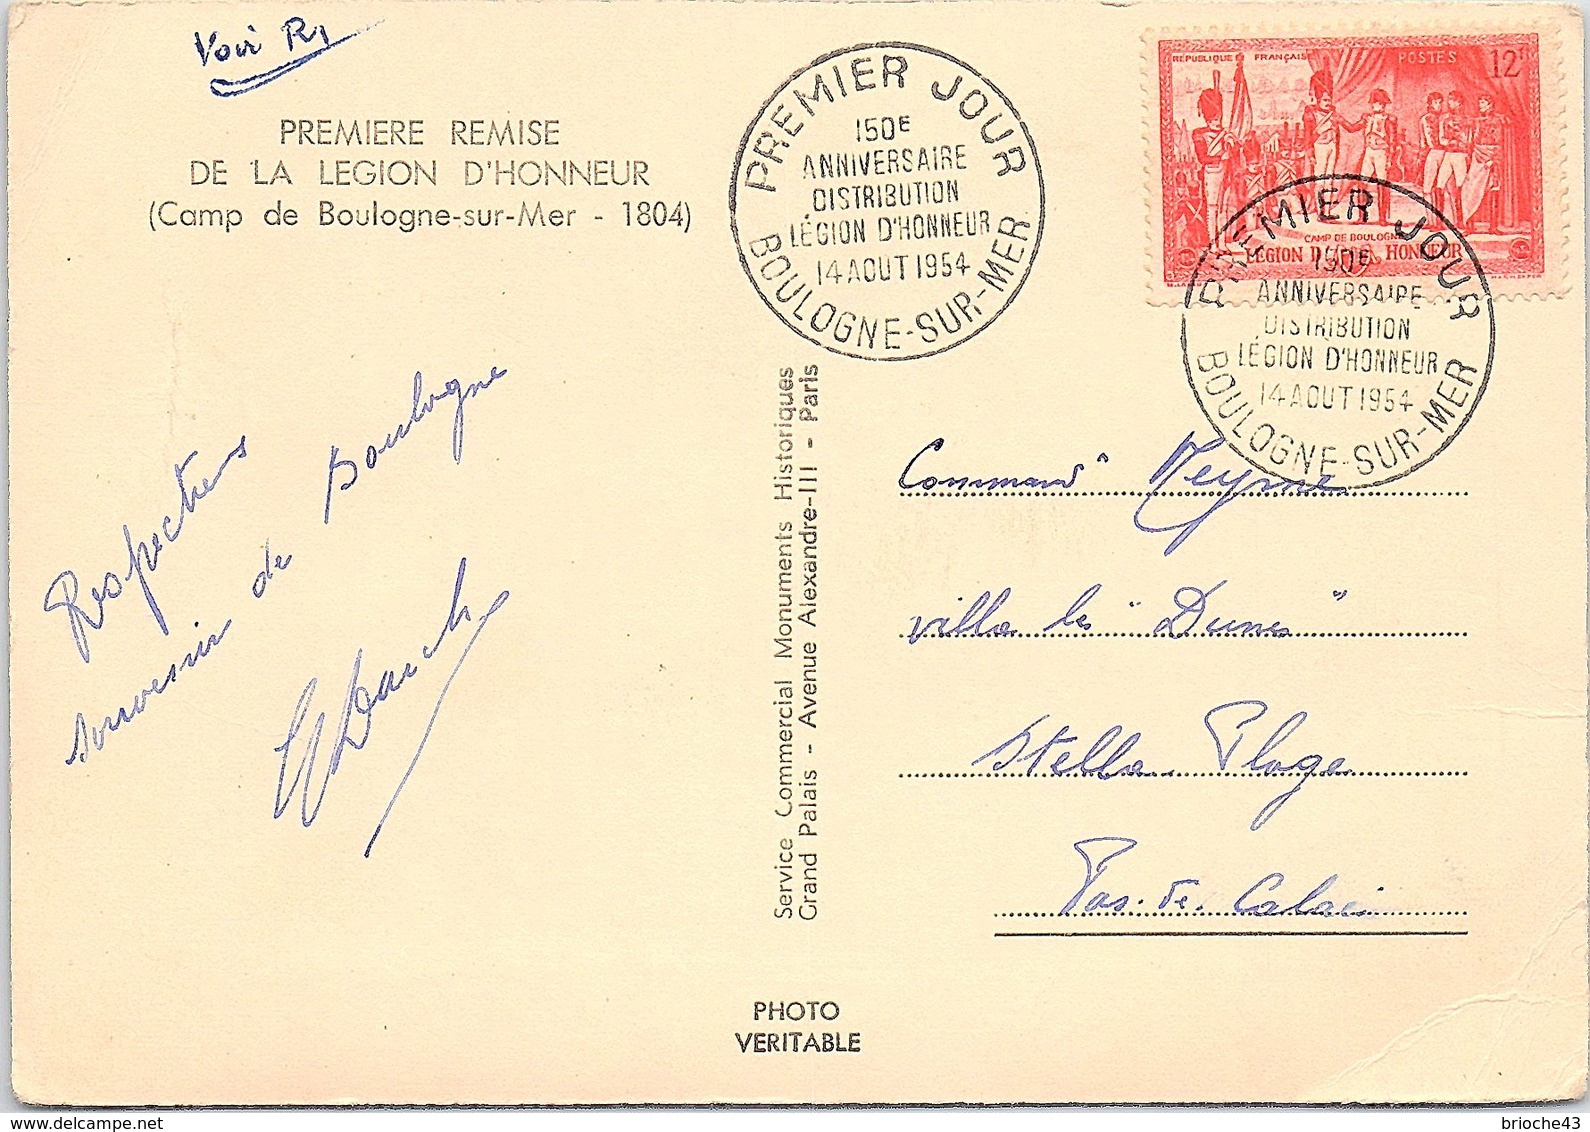 Voir R,
PREMIERE REMISE
DE LA LEGION D'HONNEUR
(Camp de Boulogne-sur-Mer - 1804)
PREMIER JOUR
150E
ANNIVERSAIRE
DISTRIBUTION
LÉGION D'HONNEUR
14 AOUT 1954
BOULOGNE-SUR-MER
REPUBLIQUE FRANÇAISE
POSTES
12F
CAMP DE BOULOGNE
LEGION D'HONNEUR
PREMIER JOUR
150E
ANNIVERSAIRE
DISTRIBUTION
LÉGION D'HONNEUR
14 AOUT 1954
BOULOGNE-SUR-MER
Respectueux
souvenir de Boulogne
Service Commercial Monuments Historiques
Grand Palais - Avenue Alexandre-III - Paris
Command^t Meyme
villa les "Dunes"
Stella Plage
Pas-de-Calais
PHOTO
VERITABLE
brioche43